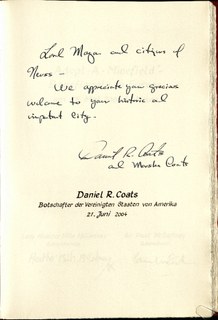 Lord Mayor and citizens of
Neuss –
We appreciate your gracious
welcome to your historic and
important city.
Daniel R. Coats
and Marsha Coats
Daniel R. Coats
Botschafter der Vereinigten Staaten von Amerika
21. Juni 2004